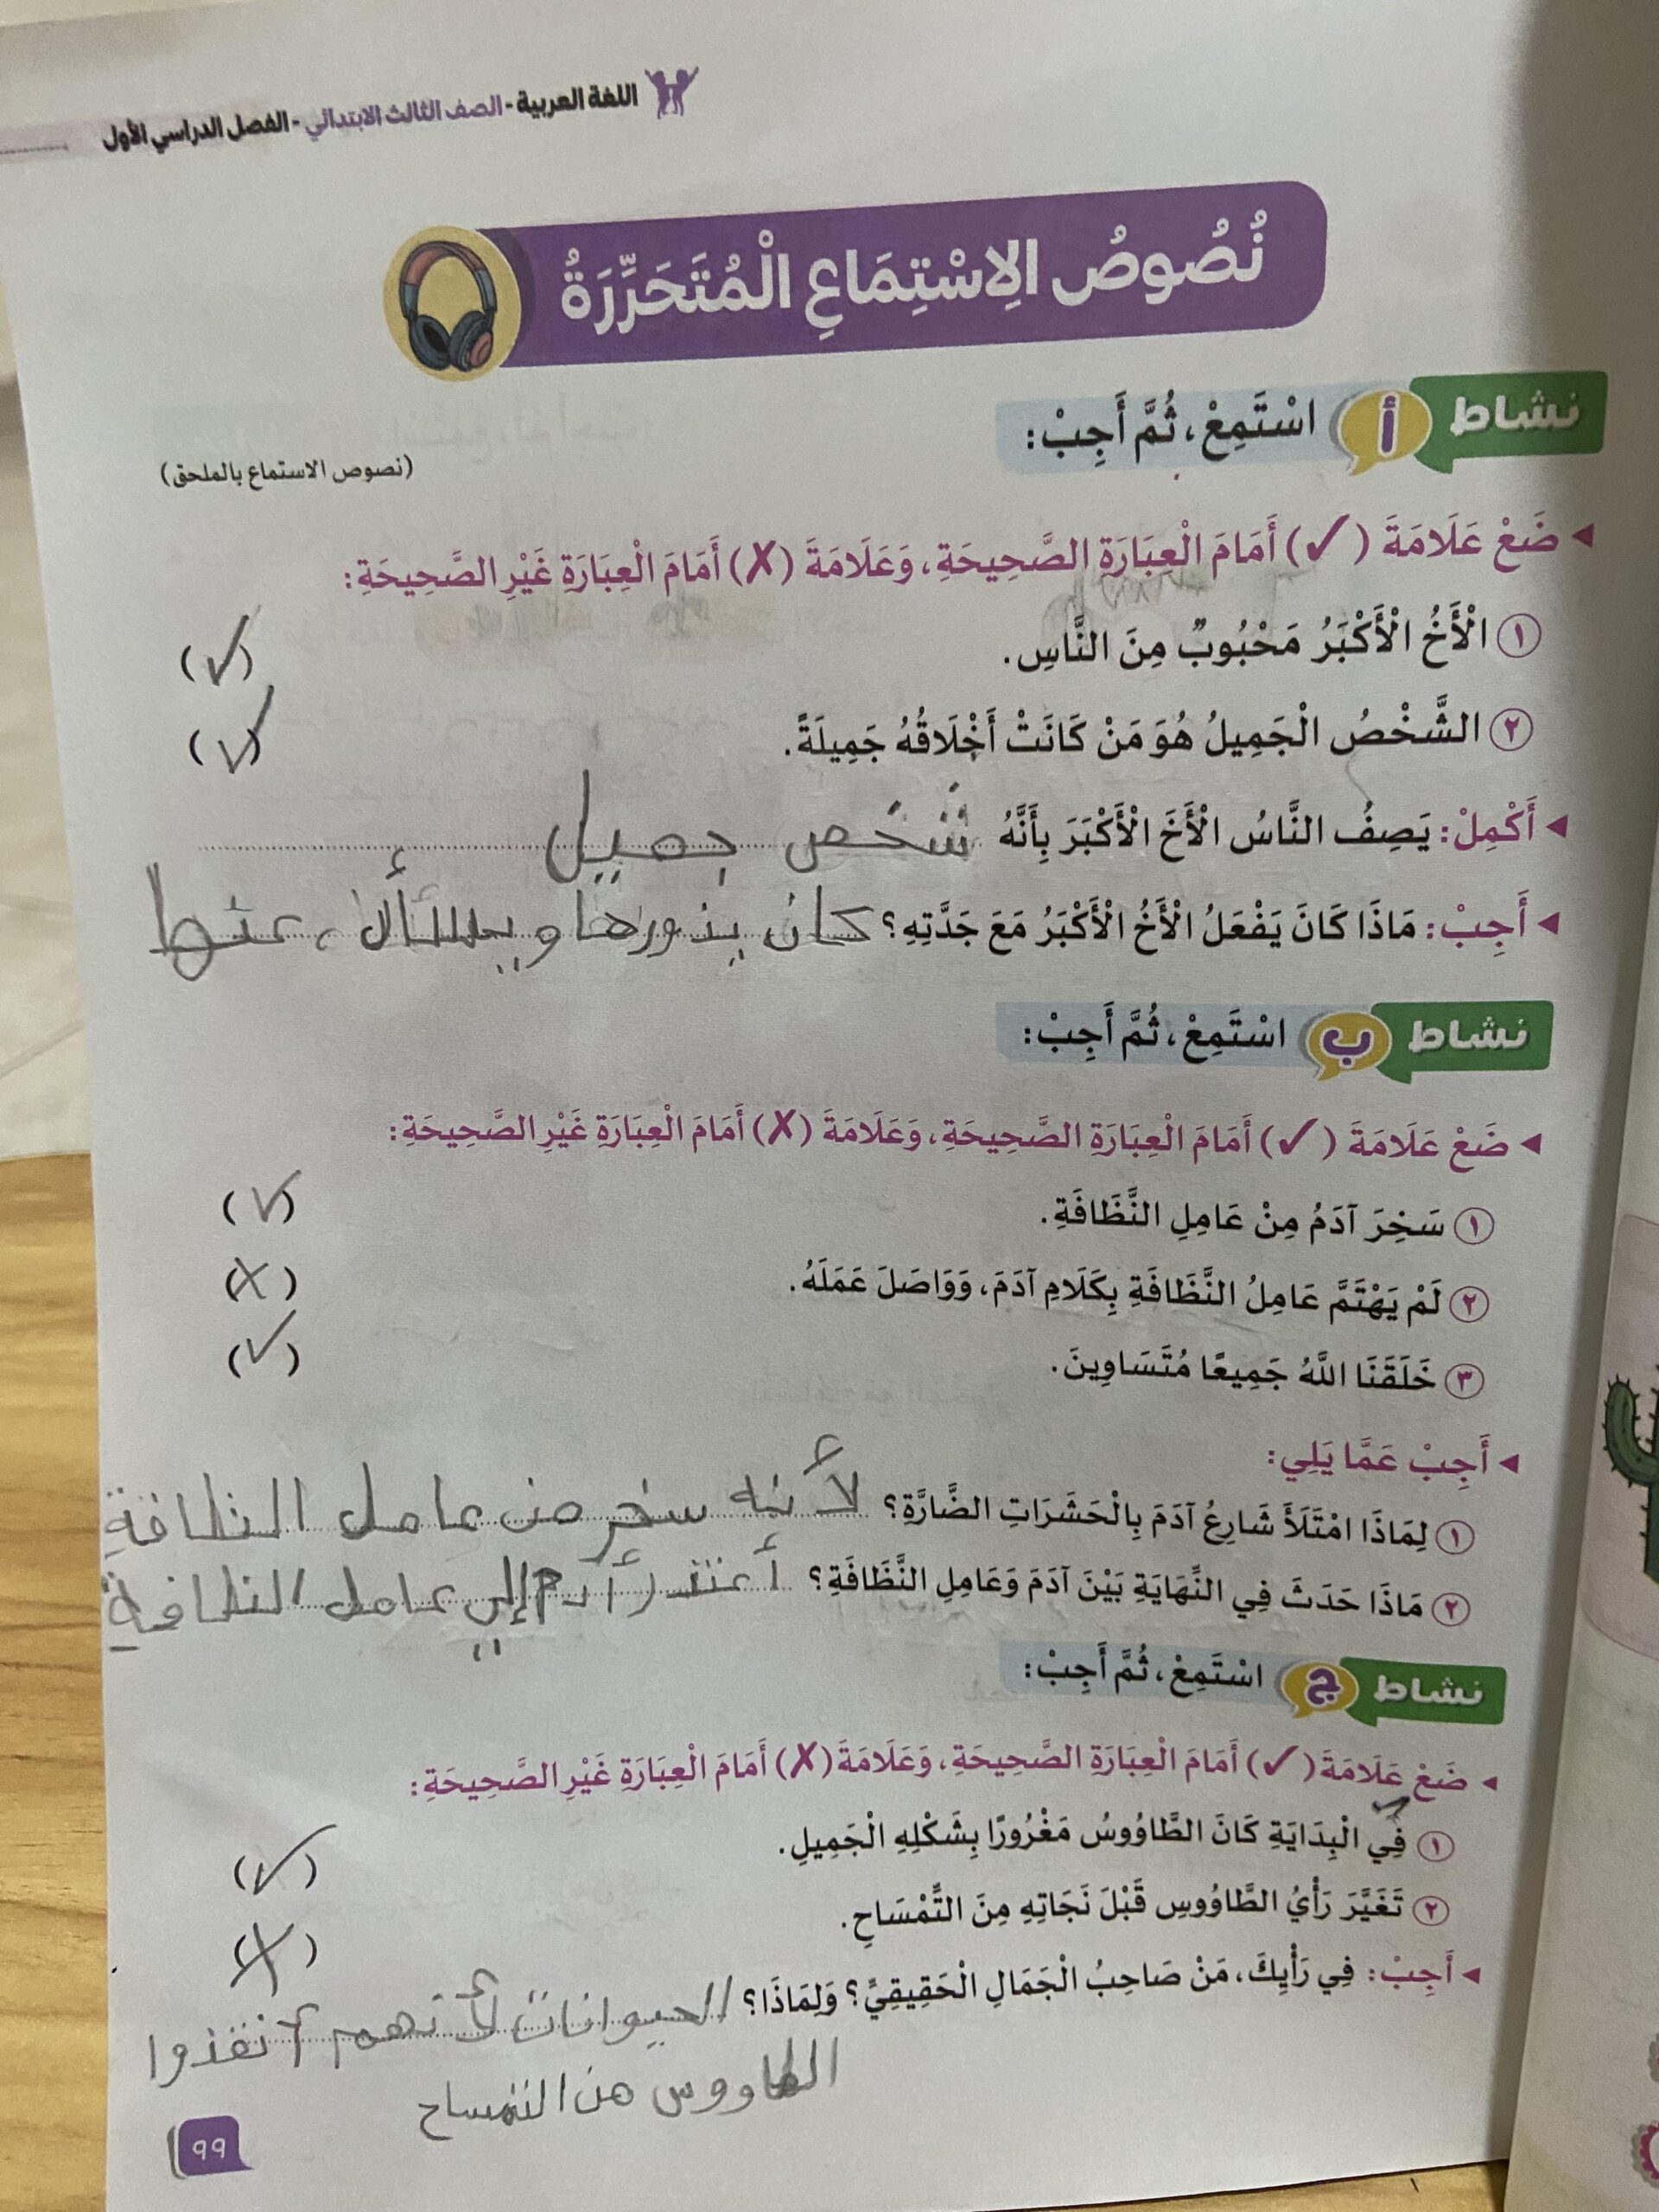 اللغة العربية - الصف الثالث الابتدائي - الفصل الدراسي الأول
نُصُوصُ الِاسْتِمَاعِ الْمُتَحَرِّرَةُ
نشاط أ اسْتَمِعْ، ثُمَّ أَجِبْ:
(نصوص الاستماع بالملحق)
◂ ضَعْ عَلَامَةَ (✓) أَمَامَ الْعِبَارَةِ الصَّحِيحَةِ، وَعَلَامَةَ (✗) أَمَامَ الْعِبَارَةِ غَيْرِ الصَّحِيحَةِ:
١ الْأَخُ الْأَكْبَرُ مَحْبُوبٌ مِنَ النَّاسِ. (✓)
٢ الشَّخْصُ الْجَمِيلُ هُوَ مَنْ كَانَتْ أَخْلَاقُهُ جَمِيلَةً. (✓)
◂ أَكْمِلْ: يَصِفُ النَّاسُ الْأَخَ الْأَكْبَرَ بِأَنَّهُ شخص جميل
◂ أَجِبْ: مَاذَا كَانَ يَفْعَلُ الْأَخُ الْأَكْبَرُ مَعَ جَدَّتِهِ؟ كان يذورها ويسأل عنها
نشاط ب اسْتَمِعْ، ثُمَّ أَجِبْ:
◂ ضَعْ عَلَامَةَ (✓) أَمَامَ الْعِبَارَةِ الصَّحِيحَةِ، وَعَلَامَةَ (✗) أَمَامَ الْعِبَارَةِ غَيْرِ الصَّحِيحَةِ:
١ سَخِرَ آدَمُ مِنْ عَامِلِ النَّظَافَةِ. (✓)
٢ لَمْ يَهْتَمَّ عَامِلُ النَّظَافَةِ بِكَلَامِ آدَمَ، وَوَاصَلَ عَمَلَهُ. (✗)
٣ خَلَقَنَا اللَّهُ جَمِيعًا مُتَسَاوِينَ. (✓)
◂ أَجِبْ عَمَّا يَلِي:
١ لِمَاذَا امْتَلَأَ شَارِعُ آدَمَ بِالْحَشَرَاتِ الضَّارَّةِ؟ لأنه سخر من عامل النظافة
٢ مَاذَا حَدَثَ فِي النِّهَايَةِ بَيْنَ آدَمَ وَعَامِلِ النَّظَافَةِ؟ أعتذر أدم إلي عامل النظافة
نشاط ج اسْتَمِعْ، ثُمَّ أَجِبْ:
◂ ضَعْ عَلَامَةَ (✓) أَمَامَ الْعِبَارَةِ الصَّحِيحَةِ، وَعَلَامَةَ (✗) أَمَامَ الْعِبَارَةِ غَيْرِ الصَّحِيحَةِ:
١ فِي الْبِدَايَةِ كَانَ الطَّاوُوسُ مَغْرُورًا بِشَكْلِهِ الْجَمِيلِ. (✓)
٢ تَغَيَّرَ رَأْيُ الطَّاوُوسِ قَبْلَ نَجَاتِهِ مِنَ التِّمْسَاحِ. (✗)
◂ أَجِبْ: فِي رَأْيِكَ، مَنْ صَاحِبُ الْجَمَالِ الْحَقِيقِيِّ؟ وَلِمَاذَا؟ الحيوانات لأنهم أنقذوا
الطاووس من التمساح
٩٩